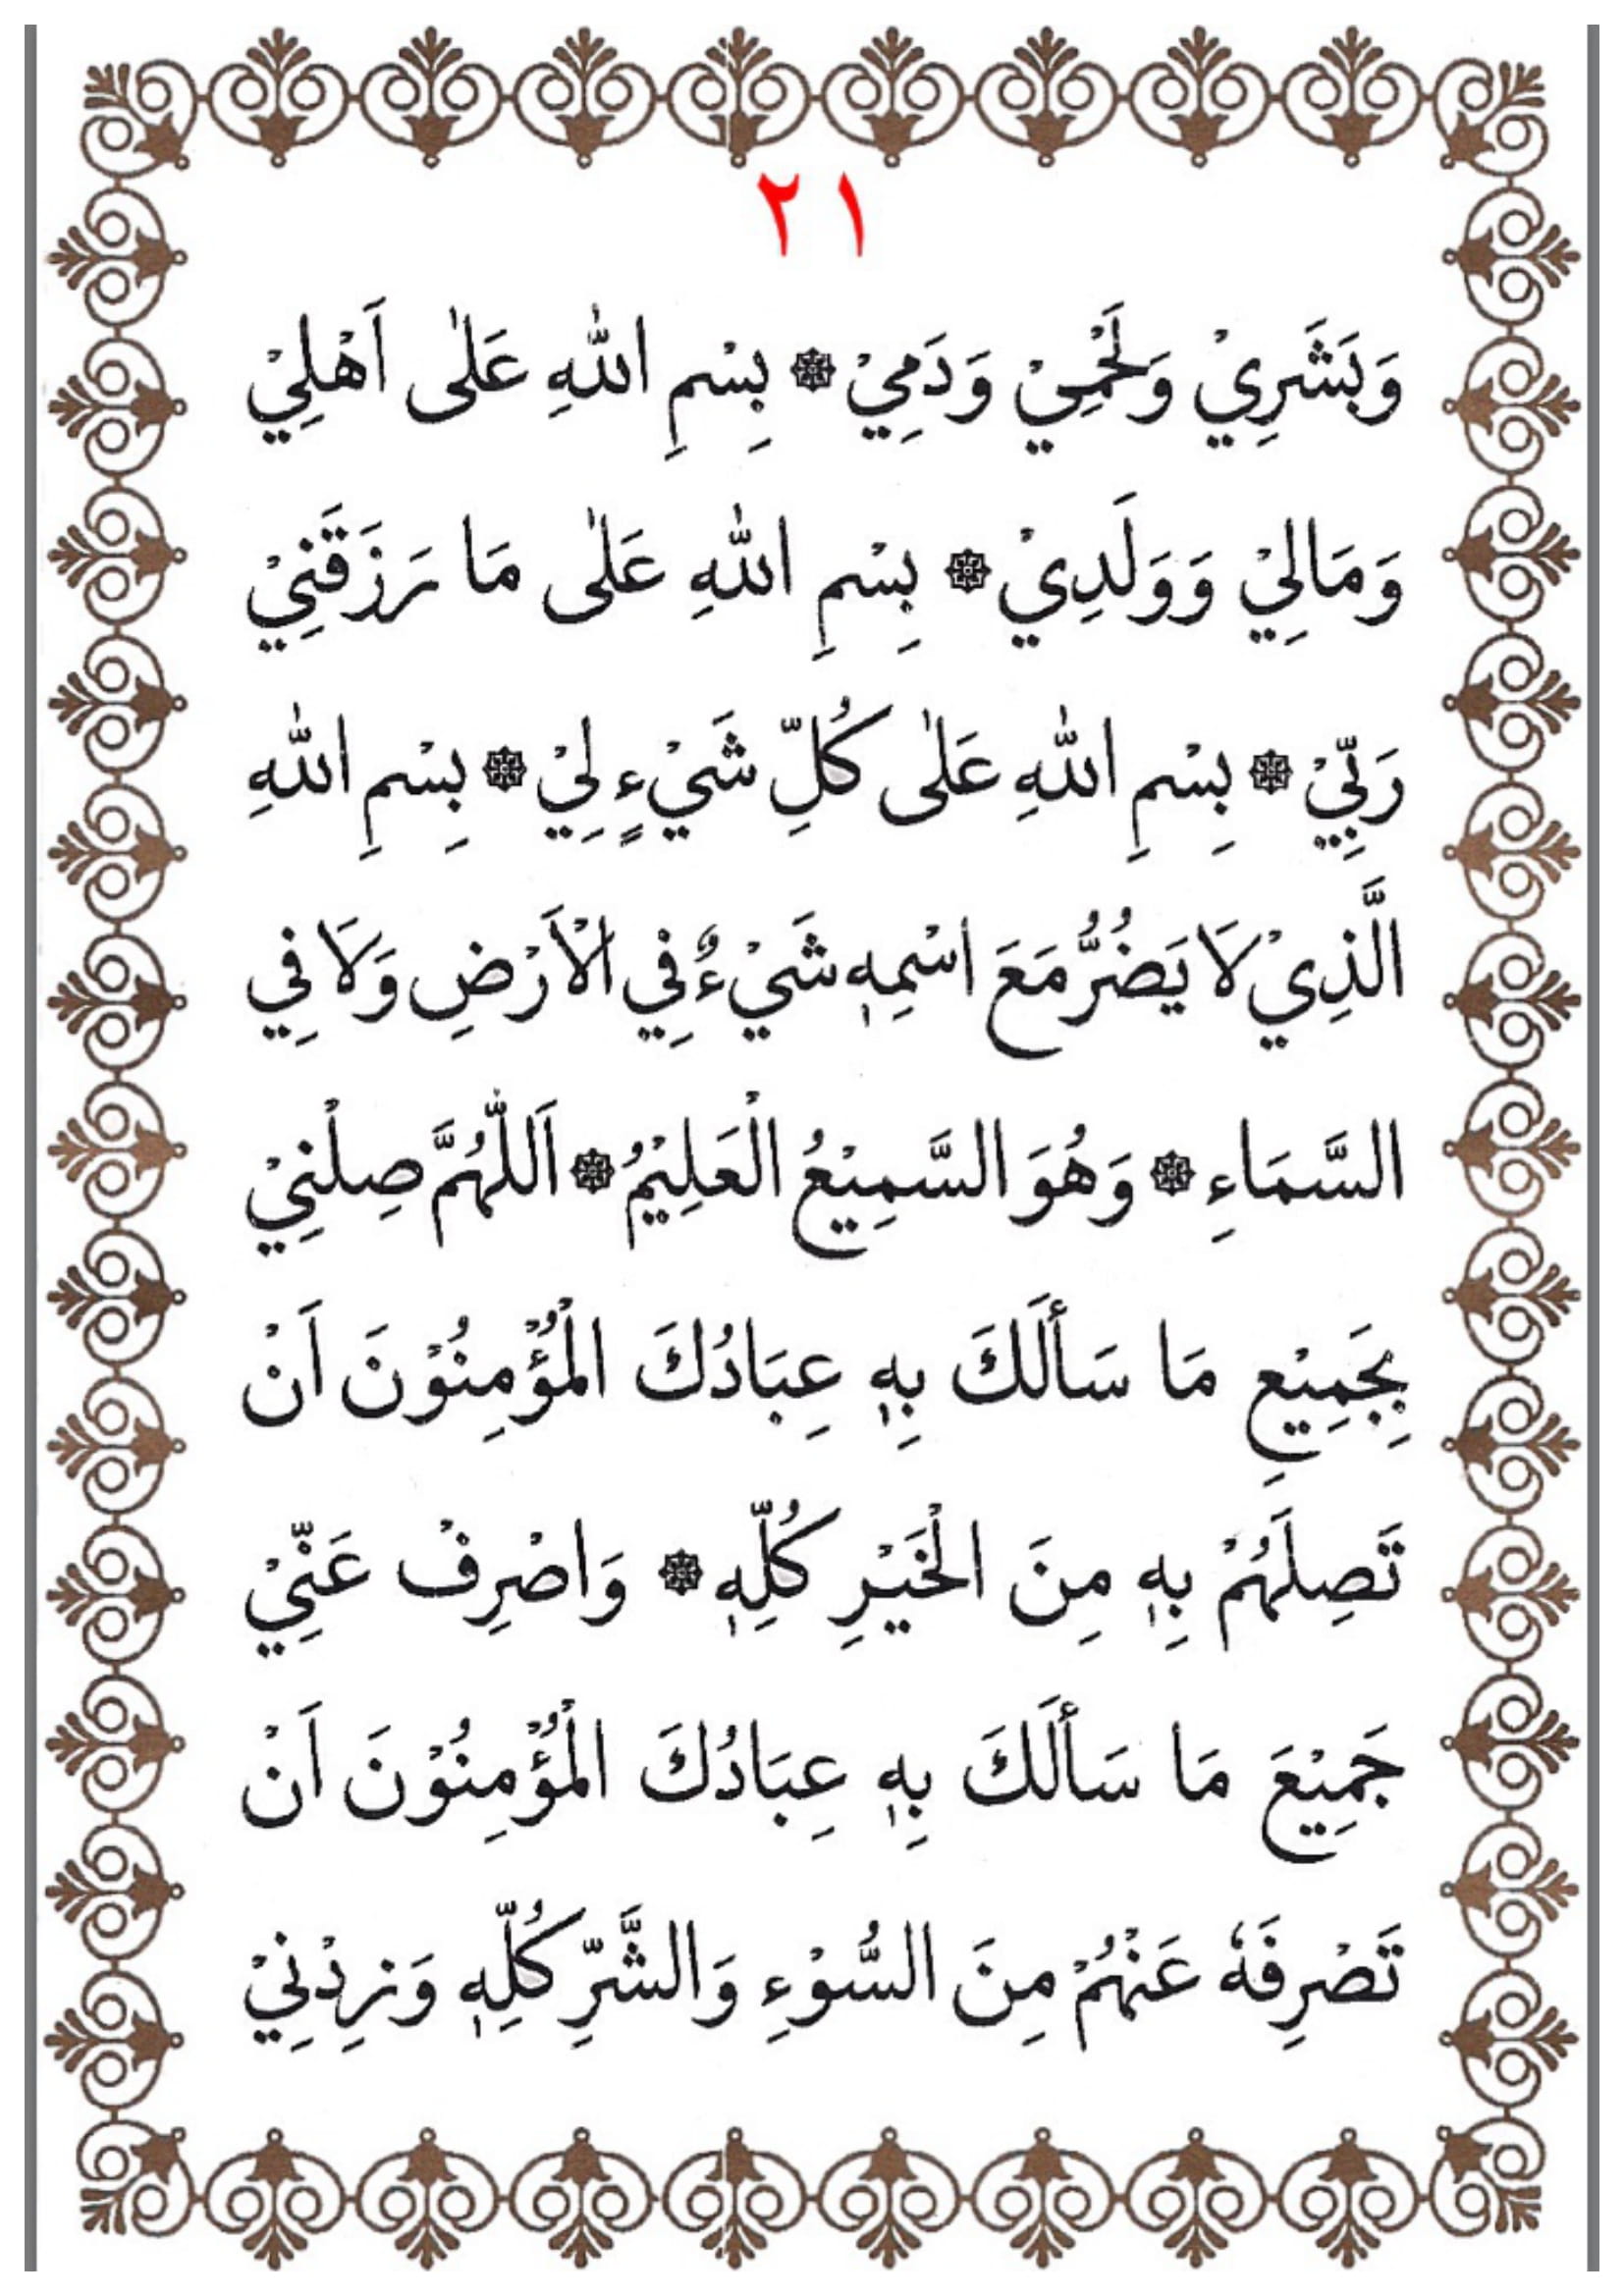 ٢١
وَبَشَرِيْ وَلَحْمِيْ وَدَمِيْ ۞ بِسْمِ اللهِ عَلٰى اَهْلِيْ
وَمَالِيْ وَوَلَدِيْ ۞ بِسْمِ اللهِ عَلٰى مَا رَزَقَنِيْ
رَبِّيْ ۞ بِسْمِ اللهِ عَلٰى كُلِّ شَيْءٍ لِيْ ۞ بِسْمِ اللهِ
الَّذِيْ لَا يَضُرُّ مَعَ اسْمِهٖ شَيْءٌ فِي الْاَرْضِ وَلَا فِي
السَّمَاءِ ۞ وَهُوَ السَّمِيْعُ الْعَلِيْمُ ۞ اَللّٰهُمَّ صِلْنِيْ
بِجَمِيْعِ مَا سَأَلَكَ بِهٖ عِبَادُكَ الْمُؤْمِنُوْنَ اَنْ
تَصِلَهُمْ بِهٖ مِنَ الْخَيْرِ كُلِّهٖ ۞ وَاصْرِفْ عَنِّيْ
جَمِيْعَ مَا سَأَلَكَ بِهٖ عِبَادُكَ الْمُؤْمِنُوْنَ اَنْ
تَصْرِفَهٗ عَنْهُمْ مِنَ السُّوْءِ وَالشَّرِّ كُلِّهٖ وَزِدْنِيْ